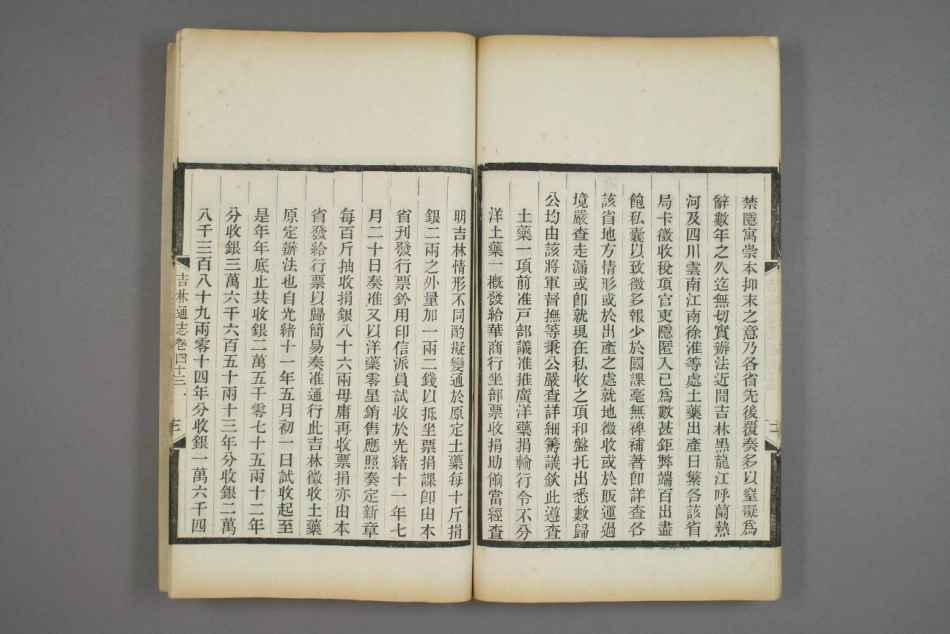 禁隱寓崇本抑末之意乃各省先後覆奏多以窒礙爲
辭數年之久迄無切實辦法近聞吉林黑龍江呼蘭熱
河及四川雲南江南徐淮等處土藥出產日繁各該省
局卡徵收稅項官吏隱匿入己爲數甚鉅弊端百出盡
飽私囊以致徵多報少於國課毫無裨補著卽詳查各
該省地方情形或於出產之處就地徵收或於販運過
境嚴查走漏或卽就現在私收之項和盤托出悉數歸
公均由該將軍督撫等秉公嚴查詳細籌議欽此遵查
土藥一項前准戶部議准推廣洋藥捐輸行令不分
洋土藥一概發給華商行坐部票收捐助餉當經查
明吉林情形不同酌擬變通於原定土藥每十斤捐
銀二兩之外量加一兩二錢以抵坐票捐課卽由本
省刊發行票鈐用印信派員試收於光緒十一年七
月二十日奏准又以洋藥零星銷售應照奏定新章
每百斤抽收捐銀八十六兩毋庸再收票捐亦由本
省發給行票以歸簡易奏准通行此吉林徵收土藥
原定辦法也自光緒十一年五月初一日試收起至
是年年底止共收銀二萬五千零七十五兩十二年
分收銀三萬六千六百五十兩十三年分收銀二萬
八千三百八十九兩零十四年分收銀一萬六千四
吉林通志卷四十三